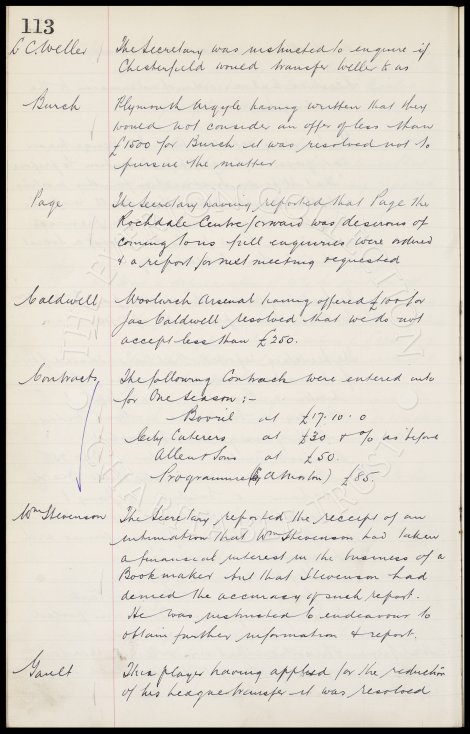 113
L C. Weller The Secretary was instructed to enquire if
Chesterfield would transfer Weller to us
Burch Plymouth Argyle having written that they
would not consider an offer of less than
£1500 for Burch it was resolved not to
pursue the matter
Page The Secretary having reported that Page the
Rochdale Centre forward was desirous of
coming to us full enquiries were ordered
& a report for next meeting requested
Caldwell Woolwich Arsenal having offered £100 for
Jas Caldwell resolved that we do not
accept less than £250.
Contracts The following Contracts were entered into
for One Season :-
Bovril at £17.10.0
City Caterers at £30 & % as before
Allen & Sons at £50.
Programme (by A Morton) £85.
Wm Stevenson The Secretary reported the receipt of an
intimation that Wm Stevenson had taken
a financial interest in the business of a
Bookmaker but that Stevenson had
denied the accuracy of such report.
He was instructed to endeavour to
obtain further information & report.
Gault This player having applied for the reduction
of his League transfer it was resolved